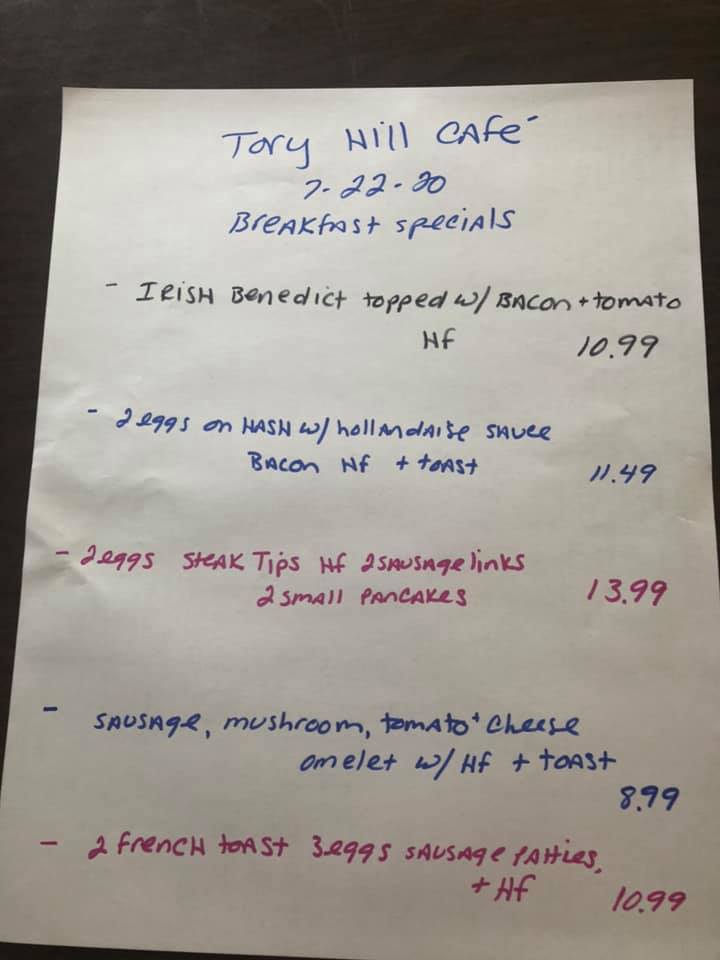 Tory Hill Café
7-22-20
Breakfast specials
- Irish Benedict topped w/ Bacon + tomato
Hf 10.99
- 2 eggs on Hash w/ hollandaise sauce
Bacon Hf + toast 11.49
- 2 eggs steak Tips Hf 2 sausage links
2 small pancakes 13.99
- sausage, mushroom, tomato + cheese
omelet w/ Hf + toast
8.99
- 2 french toast 3 eggs sausage patties,
+ Hf 10.99